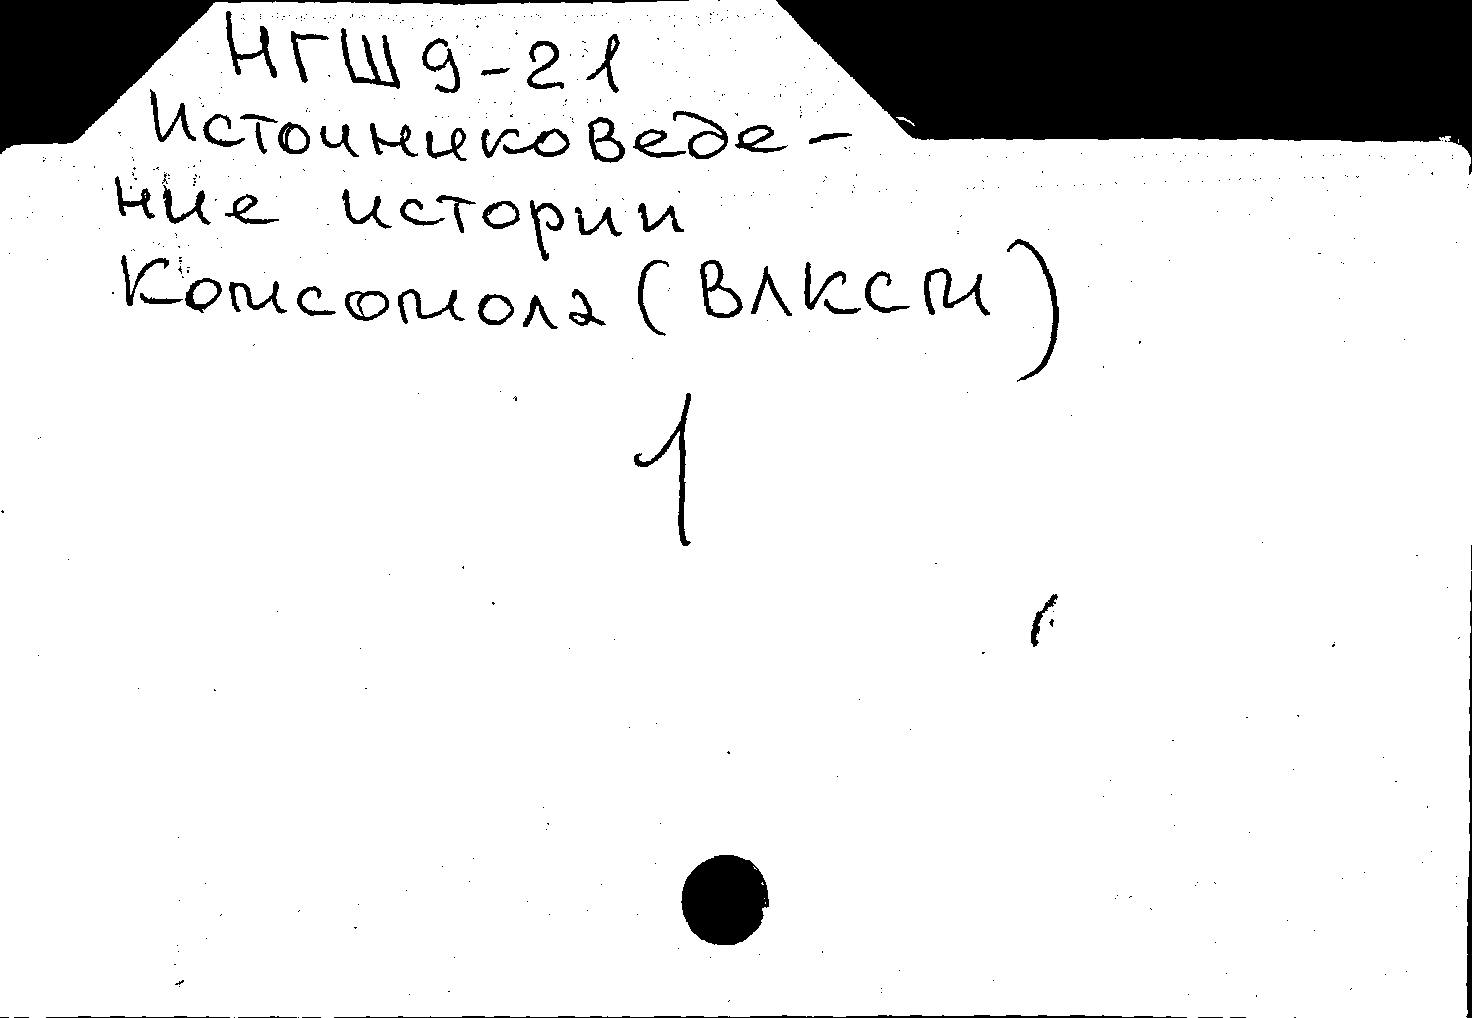 НГШ9-21
Источниковеде-
ние истории
Комсомола (ВЛКСМ)
1